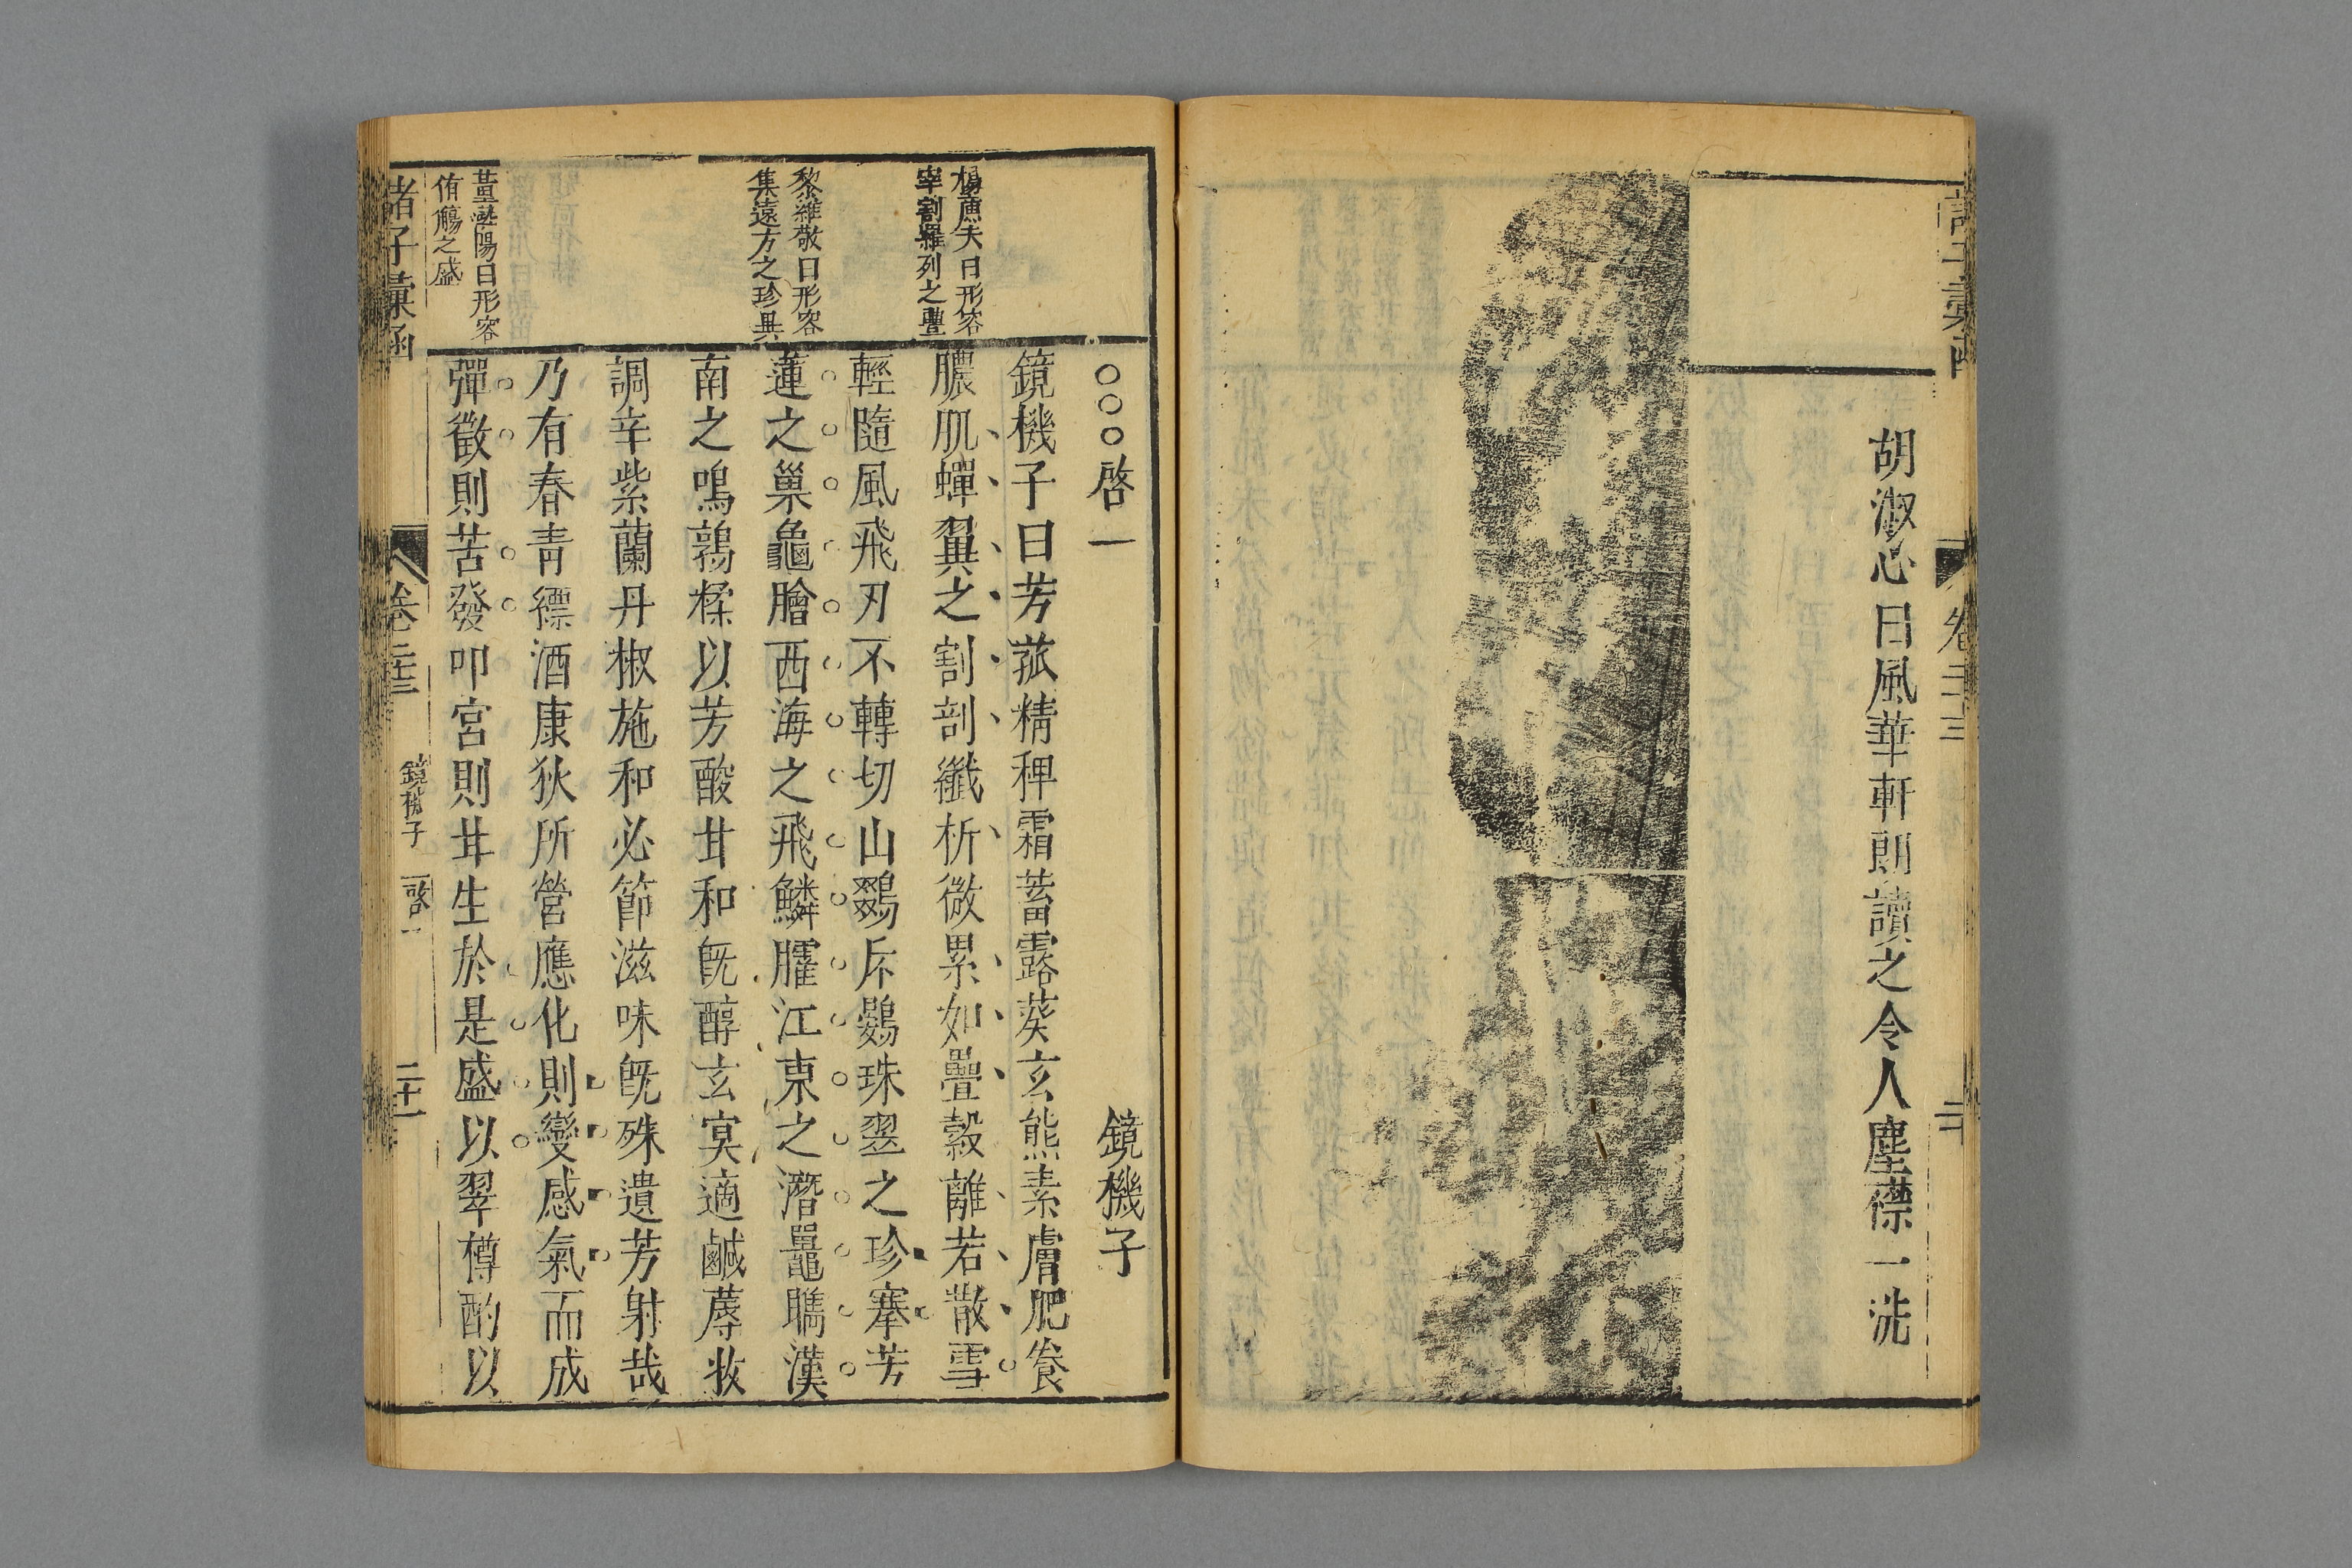 胡淑心曰風華軒朗讀之令人塵襟一洗
卷二十三
二十
○○○啓一
鏡機子
鏡機子曰芳菰精稗霜蓄露葵玄熊素膚肥豢
膿肌蟬翼之割剖纖析微累如疊縠離若散雪
輕隨風飛刃不轉切山鵽斥鷃珠翠之珍搴芳
蓮之巢龜膾西海之飛鱗臛江東之潛鼉臇漢
南之鳴鶉糅以芳酸甘和旣醇玄冥適鹹蓐收
調辛紫蘭丹椒施和必節滋味旣殊遺芳射哉
乃有春青縹酒康狄所營應化則變感氣而成
彈徵則苦發叩宮則甘生於是盛以翠樽酌以
楊庶夫曰形容
宰割羅列之豐
黎維敬曰形容
集遠方之珍異
董㵎陽曰形容
侑觴之盛
諸子彙函
卷二十三
鏡機子
啓一
二十一